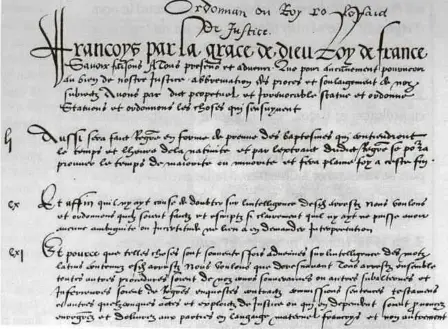 Ordonnan du Roy sur le faid
de Justice.
Francoys par la grace de dieu Roy de france
Scavoir faisons A tous presens et advenir Que pour aucunement pourveoir
au bien de nostre Justice abbreviation des proces et soulagement de noz
subiectz Avons par edit perpetuel et irrevocable statue et ordonne
Statuons et ordonnons les choses qui sensuyvent
li Aussi sera faict Registre en forme de preuve des baptesmes qui contiendront
le temps et lheure de la nativite et par lextraict dudict Registre se pourra
prouver le temps de maiorite ou minorite et fera plaine foy a ceste fin
cx Et affin quil ny ayt cause de doubter sur lintelligence desdictz arrestz Nous voulons
et ordonnons quilz soient faictz et escriptz si clairement quil ny ayt ne puisse avoir
aucune ambiguite ou incertitude ne lieu a en demander interpretation
cxi Et pource que telles choses sont souventesfois advenues sur lintelligence des motz
latins contenuz esdictz arrestz Nous voulons que doresnavant Tous arrestz ensemble
toutes autres procedures soient de noz cours souveraines ou autres subalternes et
inferieures soient de Registres enquestes contractz commissions sentences testamens
et autres quelzconques actes et exploictz de Justice ou qui en dependent soient prononcez
enregistrez et delivrez aux parties en langage maternel francoys et non autrement